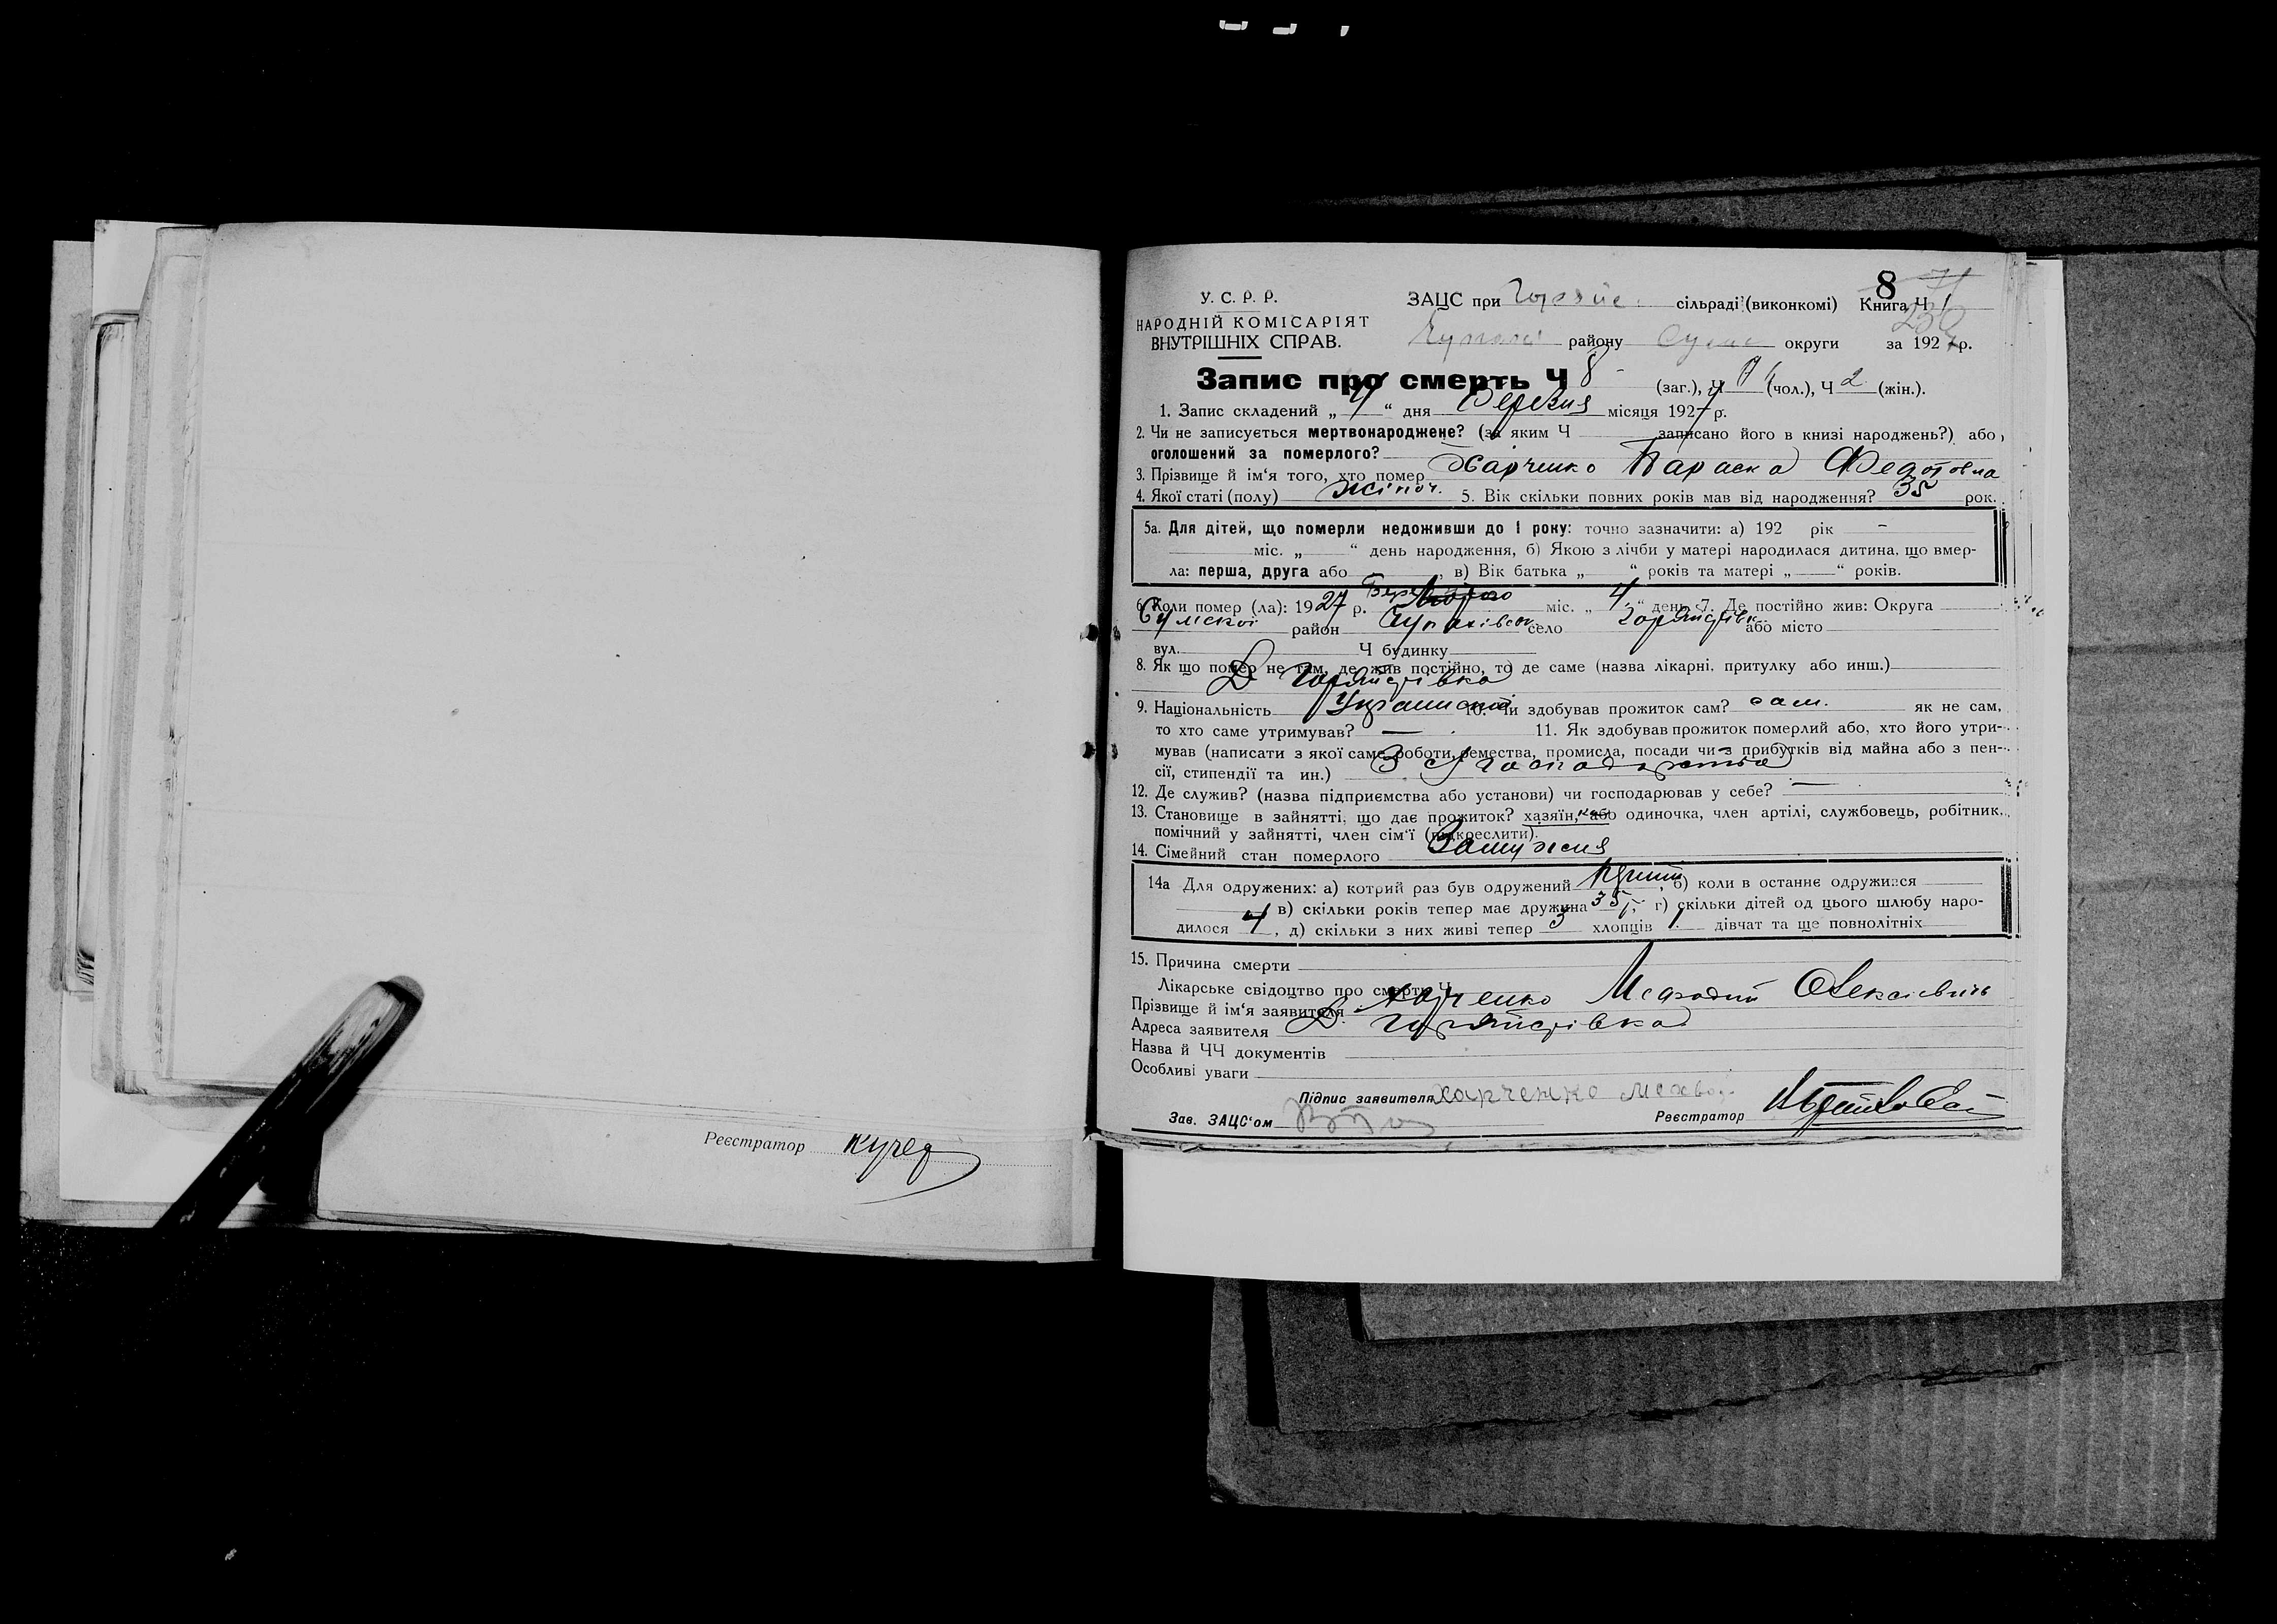 Реєстратор Кучер
8
У. С. Р. Р.
НАРОДНІЙ КОМІСАРІЯТ
ВНУТРІШНІХ СПРАВ.
ЗАЦС при сільраді (виконкомі) Книга Ч 1
району округи за 1927 р.
Запис про смерть Ч 8 (заг.), Ч (чол.), Ч 2 (жін.).
1. Запис складений „ 4 “ дня Березня місяця 1927 р.
2. Чи не записується мертвонароджене? (за яким Ч записано його в книзі народжень?) або
оголошений за померлого?
3. Прізвище й ім‘я того, хто помер Харченко Параска Федотовна
4. Якої статі (полу) жіноч. 5. Вік скільки повних років мав від народження? 35 рок.
5а. Для дітей, що померли недоживши до 1 року: точно зазначити: а) 192 рік –
міс. „ “ день народження, б) Якою з лічби у матері народилася дитина, що вмер-
ла: перша, друга або , в) Вік батька „ “ років та матері „ “ років.
6. Коли помер (ла): 1927 р. міс. „ 4 “ день 7. Де постійно жив: Округа
Сумської район село або місто
вул. Ч будинку
8. Як що помер не там, де жив постійно, то де саме (назва лікарні, притулку або инш.)
9. Національність 10. Чи здобував прожиток сам? сам. як не сам,
то хто саме утримував? — 11. Як здобував прожиток померлий або, хто його утри-
мував (написати з якої саме роботи, ремества, промисла, посади чи з прибутків від майна або з пен-
сії, стипендії та ин.) З с/господарства
12. Де служив? (назва підприємства або установи) чи господарював у себе? —
13. Становище в зайнятті, що дає прожиток? хазяїн, або одиночка, член артілі, службовець, робітник,
помічний у зайнятті, член сім‘ї (підкреслити).
14. Сімейний стан померлого Замужня
14а Для одружених: а) котрий раз був одружений , б) коли в останнє одружився
в) скільки років тепер має дружина 35 г) скільки дітей од цього шлюбу наро-
дилося 4 , д) скільки з них живі тепер 3 хлопців 1 дівчат та ще повнолітніх
15. Причина смерти
Лікарське свідоцтво про смерть Ч
Прізвище й ім‘я заявителя Харченко Олексієвич
Адреса заявителя
Назва й ЧЧ документів
Особливі уваги
Підпис заявителя Харченко
Зав. ЗАЦС‘ом Реєстратор